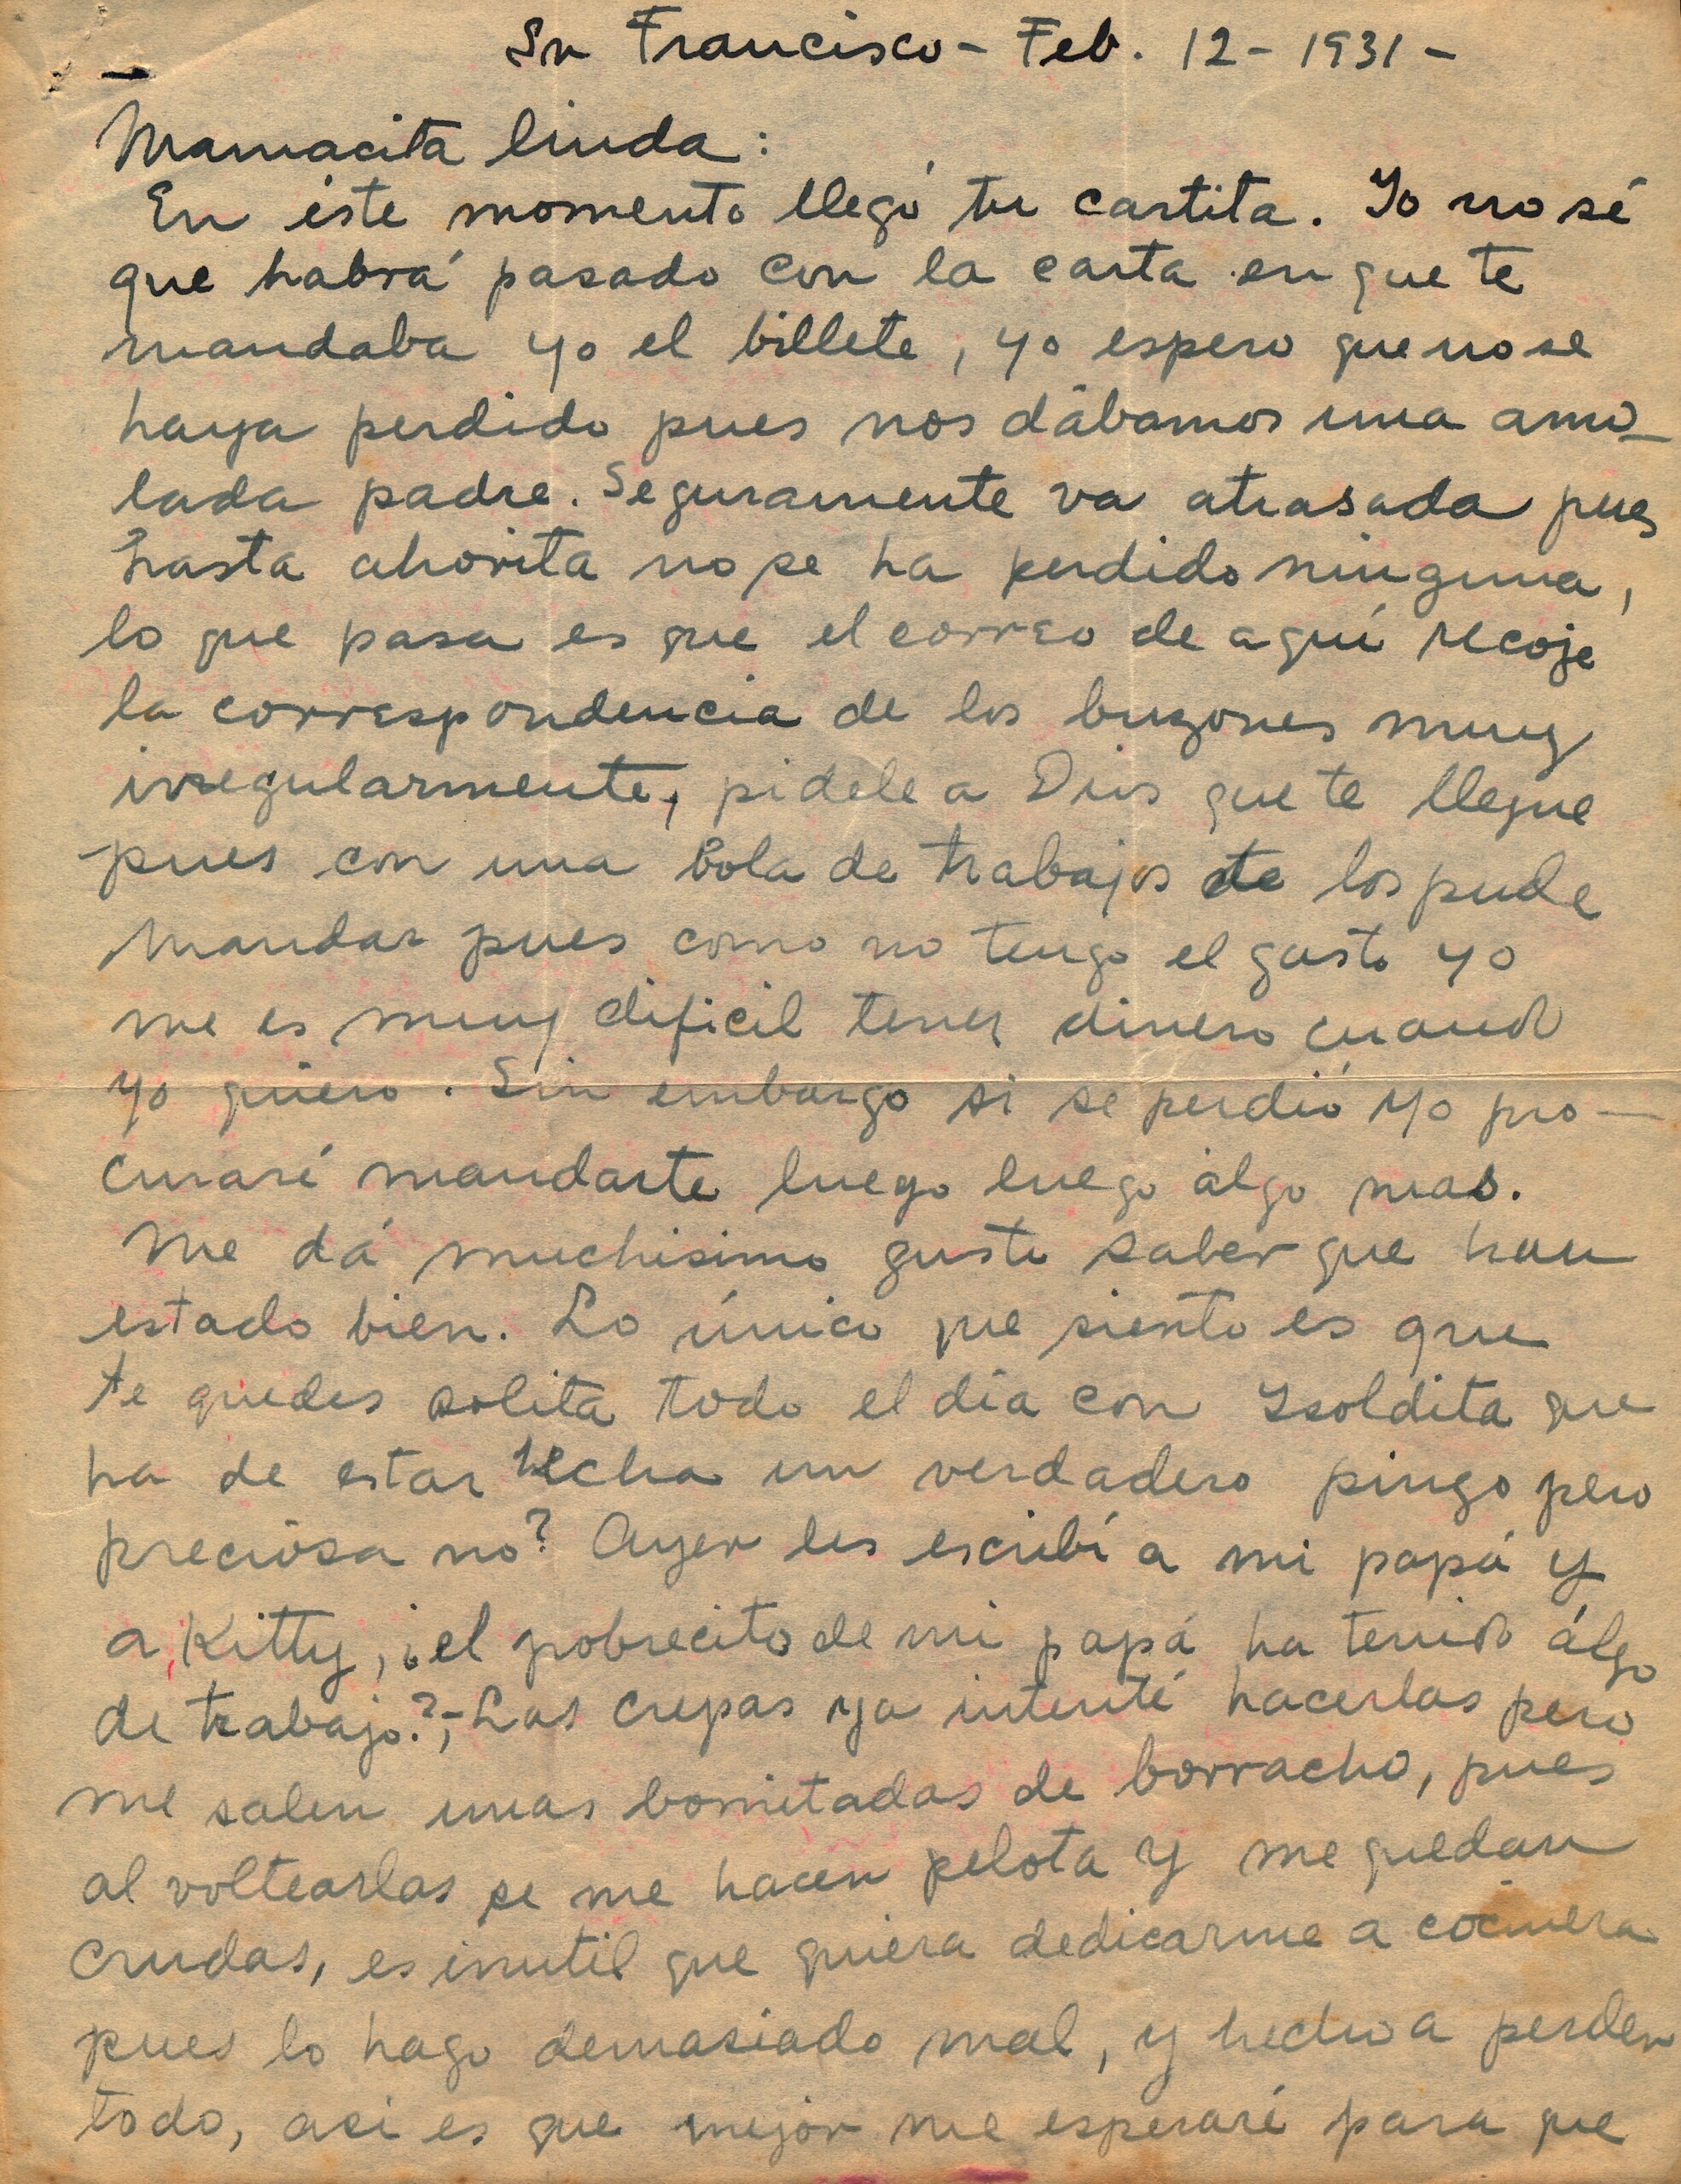 Sn Francisco - Feb. 12 - 1931 -
Mamacita linda:
En éste momento llegó tu cartita. Yo no sé
que habrá pasado con la carta en que te
mandaba yo el billete, yo espero que no se
haya perdido pues nos dábamos una amo-
lada padre. Seguramente va atrasada pues
hasta ahorita no se ha perdido ninguna,
lo que pasa es que el correo de aquí recoje
la correspondencia de los buzones muy
irregularmente, pidele a Dios que te llegue
pues con una bola de trabajos te los pude
mandar pues como no tengo el gasto yo
me es muy dificil tener dinero cuando
yo quiero. Sin embargo si se perdió yo pro-
curaré mandarte luego luego algo mas.
Me dá muchisimo gusto saber que han
estado bien. Lo único que siento es que
te quedes solita todo el día con Ysoldita que
ha de estar hecha un verdadero pingo pero
preciosa no? Ayer les escribí a mi papá y
a Kitty, ¿el pobrecito de mi papá ha tenido álgo
de trabajo?,- Las crepas ya intenté hacerlas pero
me salen unas bomitadas de borracho, pues
al voltearlas se me hacen pelota y me quedan
crudas, es inutil que quiera dedicarme a cocinera
pues lo hago demasiado mal, y hecho a perder
todo, asi es que mejor me esperaré para que